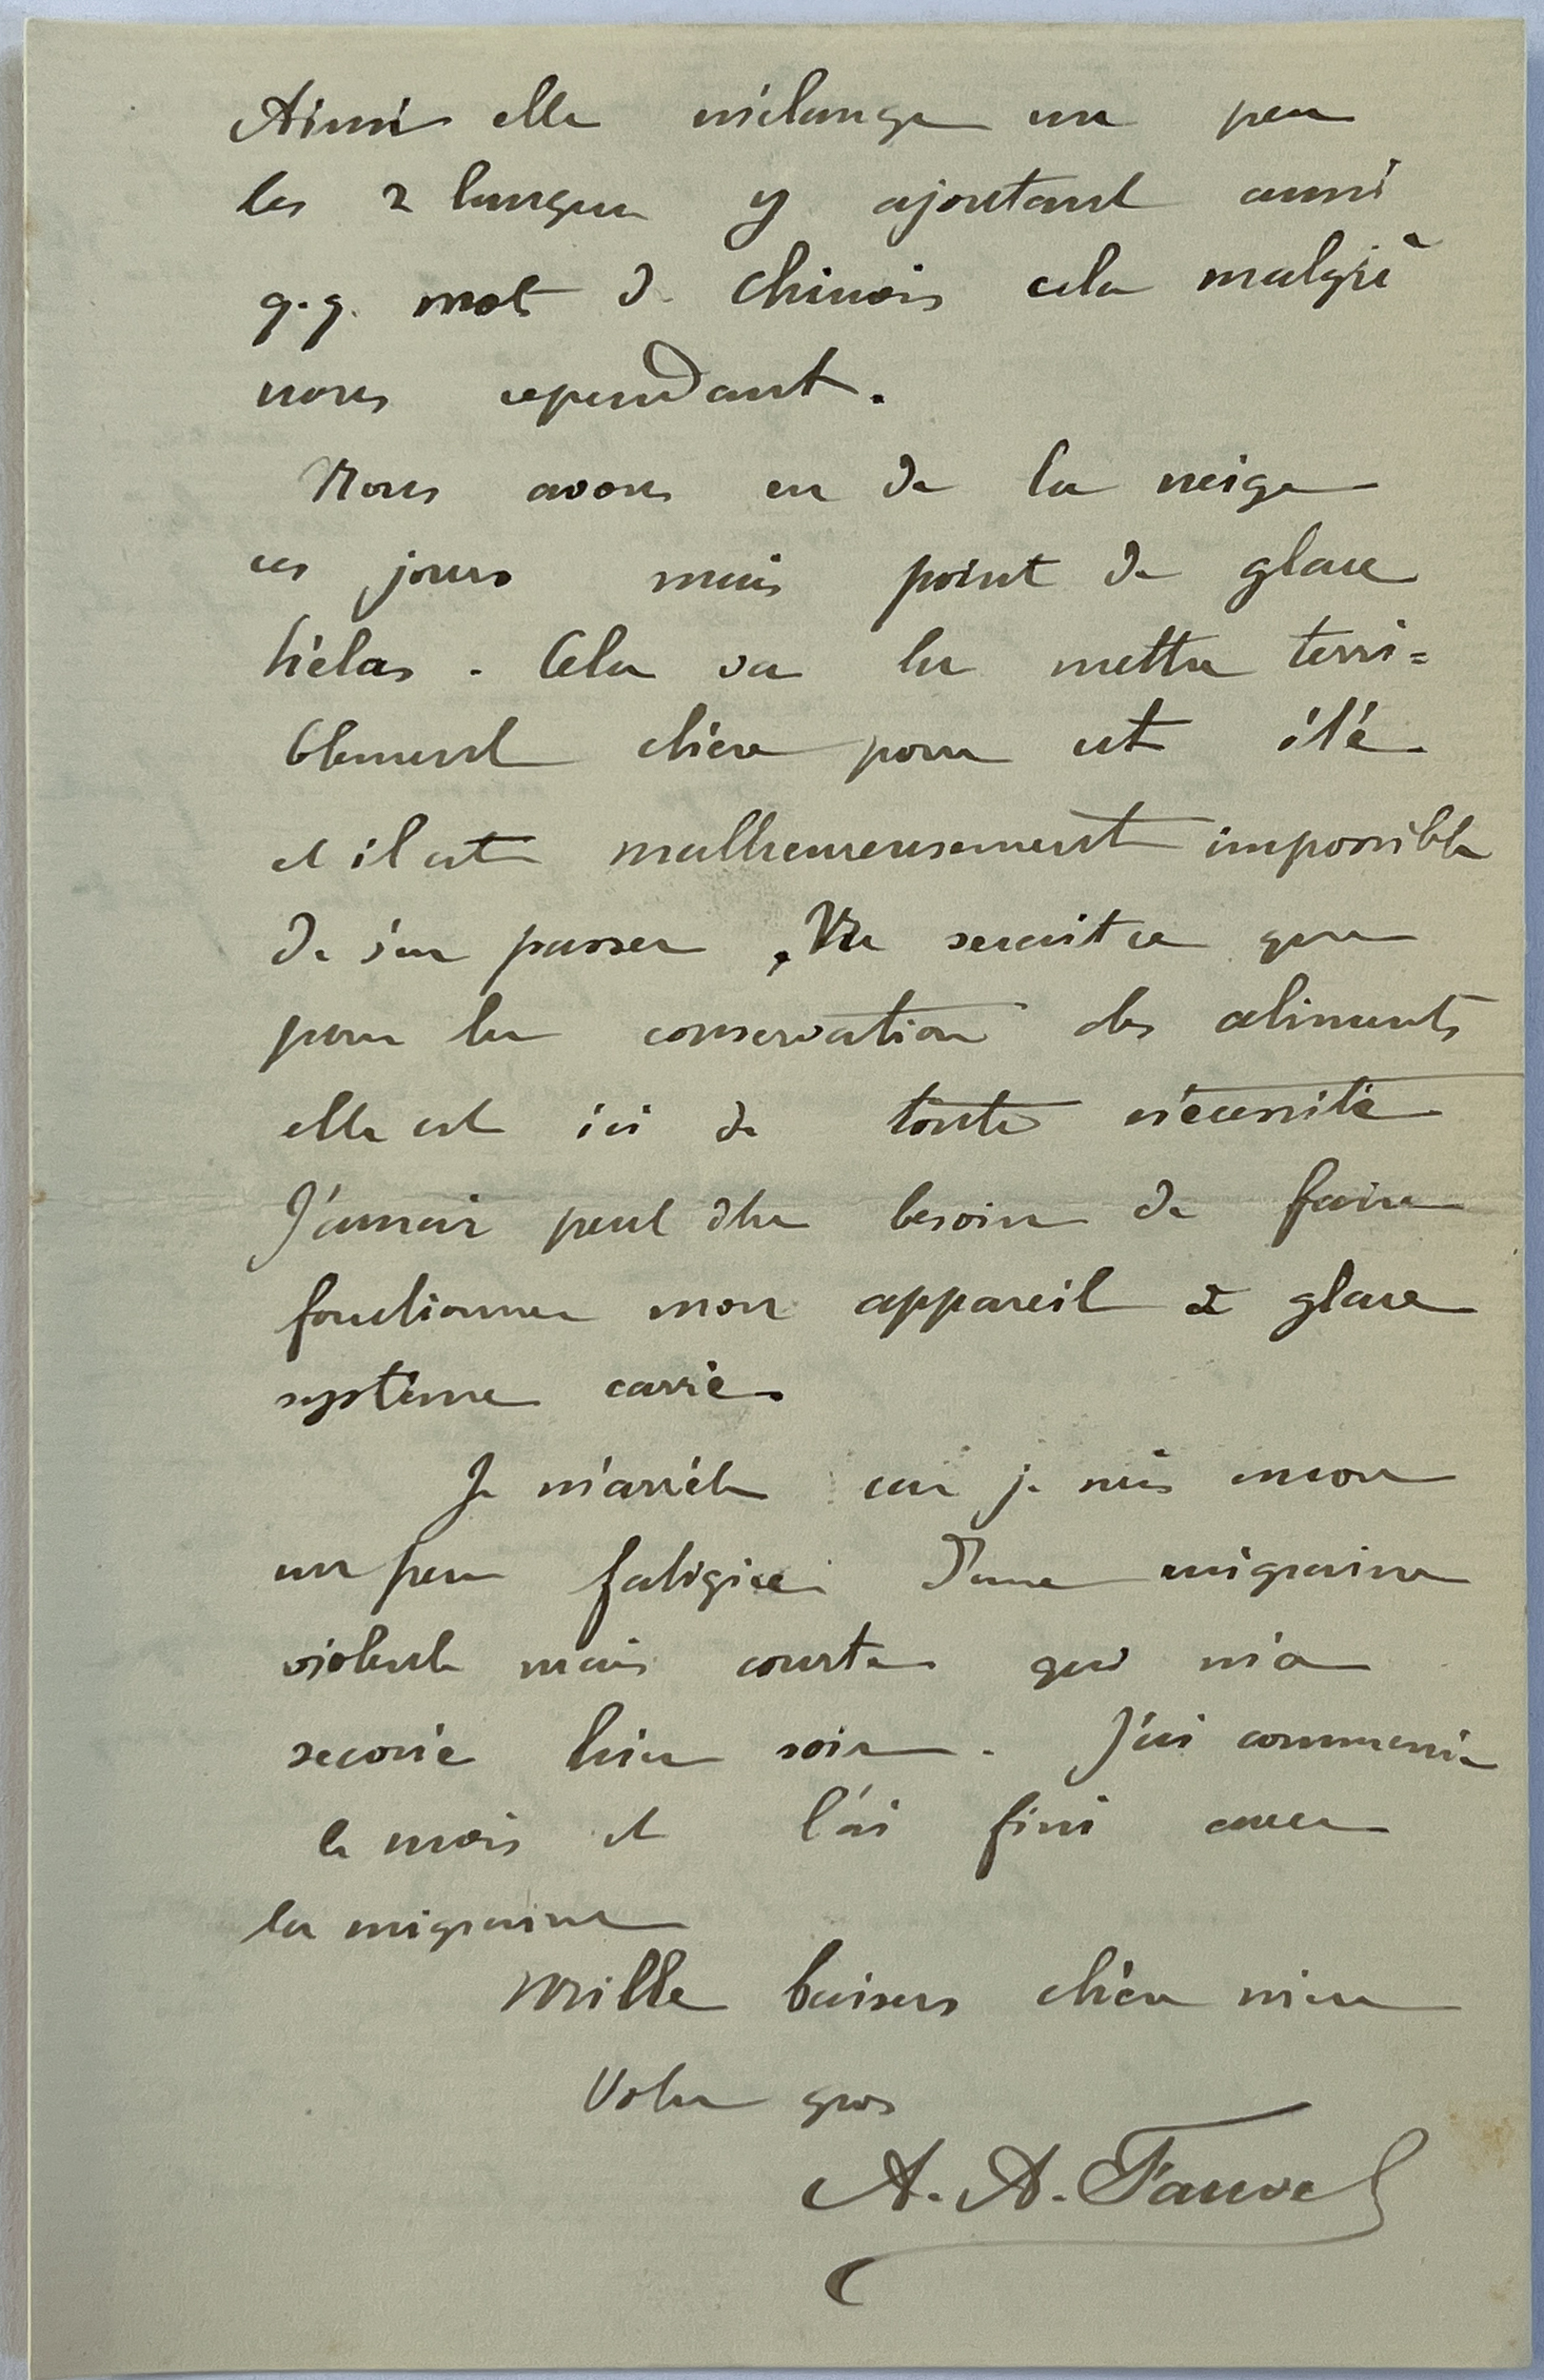 Ainsi elle mélange un peu
les 2 langues y ajoutant aussi
q.q. mot de chinois cela malgré
nous cependant.
Nous avons eu de la neige
ces jours mais point de glace
hélas. Cela va la mettre terri=
blement chère pour cet été
et il est malheureusement impossible
de s'en passer, Ne serait ce que
pour la conservation des aliments
elle est ici de toute nécessité
J'aurai peut être besoin de faire
fonctionner mon appareil à glace
système carré.
Je m'arrête car je suis encore
un peu fatigué d'une migraine
violente mais courte qui m'a
secoué hier soir. J'ai commencé
le mois et l'ai fini avec
la migraine
Mille baisers chère mère
Votre gros
A. A. Fauvel